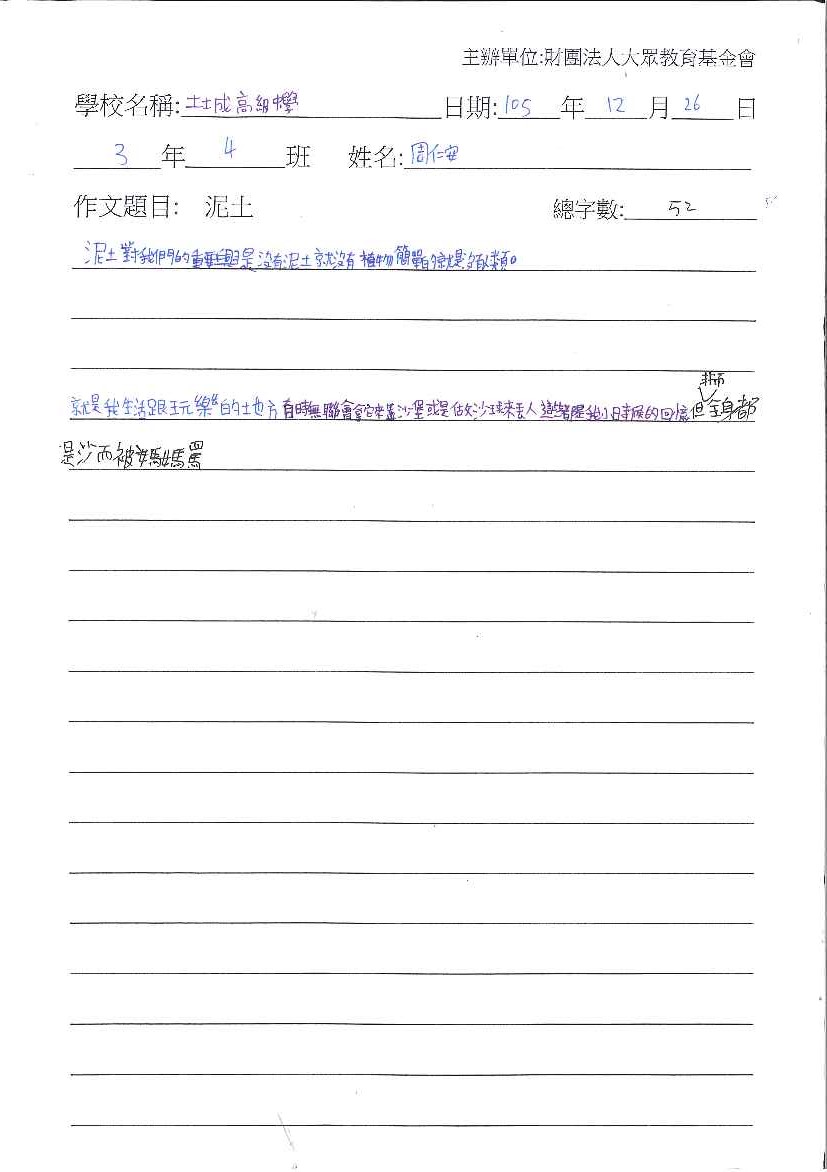 主辦單位:財團法人大眾教育基金會
學校名稱:土城高級中學 日期:105 年 12 月 26 日
3 年 4 班 姓名:周仁安
作文題目: 泥土 總字數: 52
泥土對我們的重要性是沒有泥土就沒有植物簡單的就是沒有人類。
就是我生活跟玩樂的地方有時無聊會拿來蓋沙堡或是做沙球來丟人這些都是我小時候的回憶但全身都
是沙而被媽媽罵